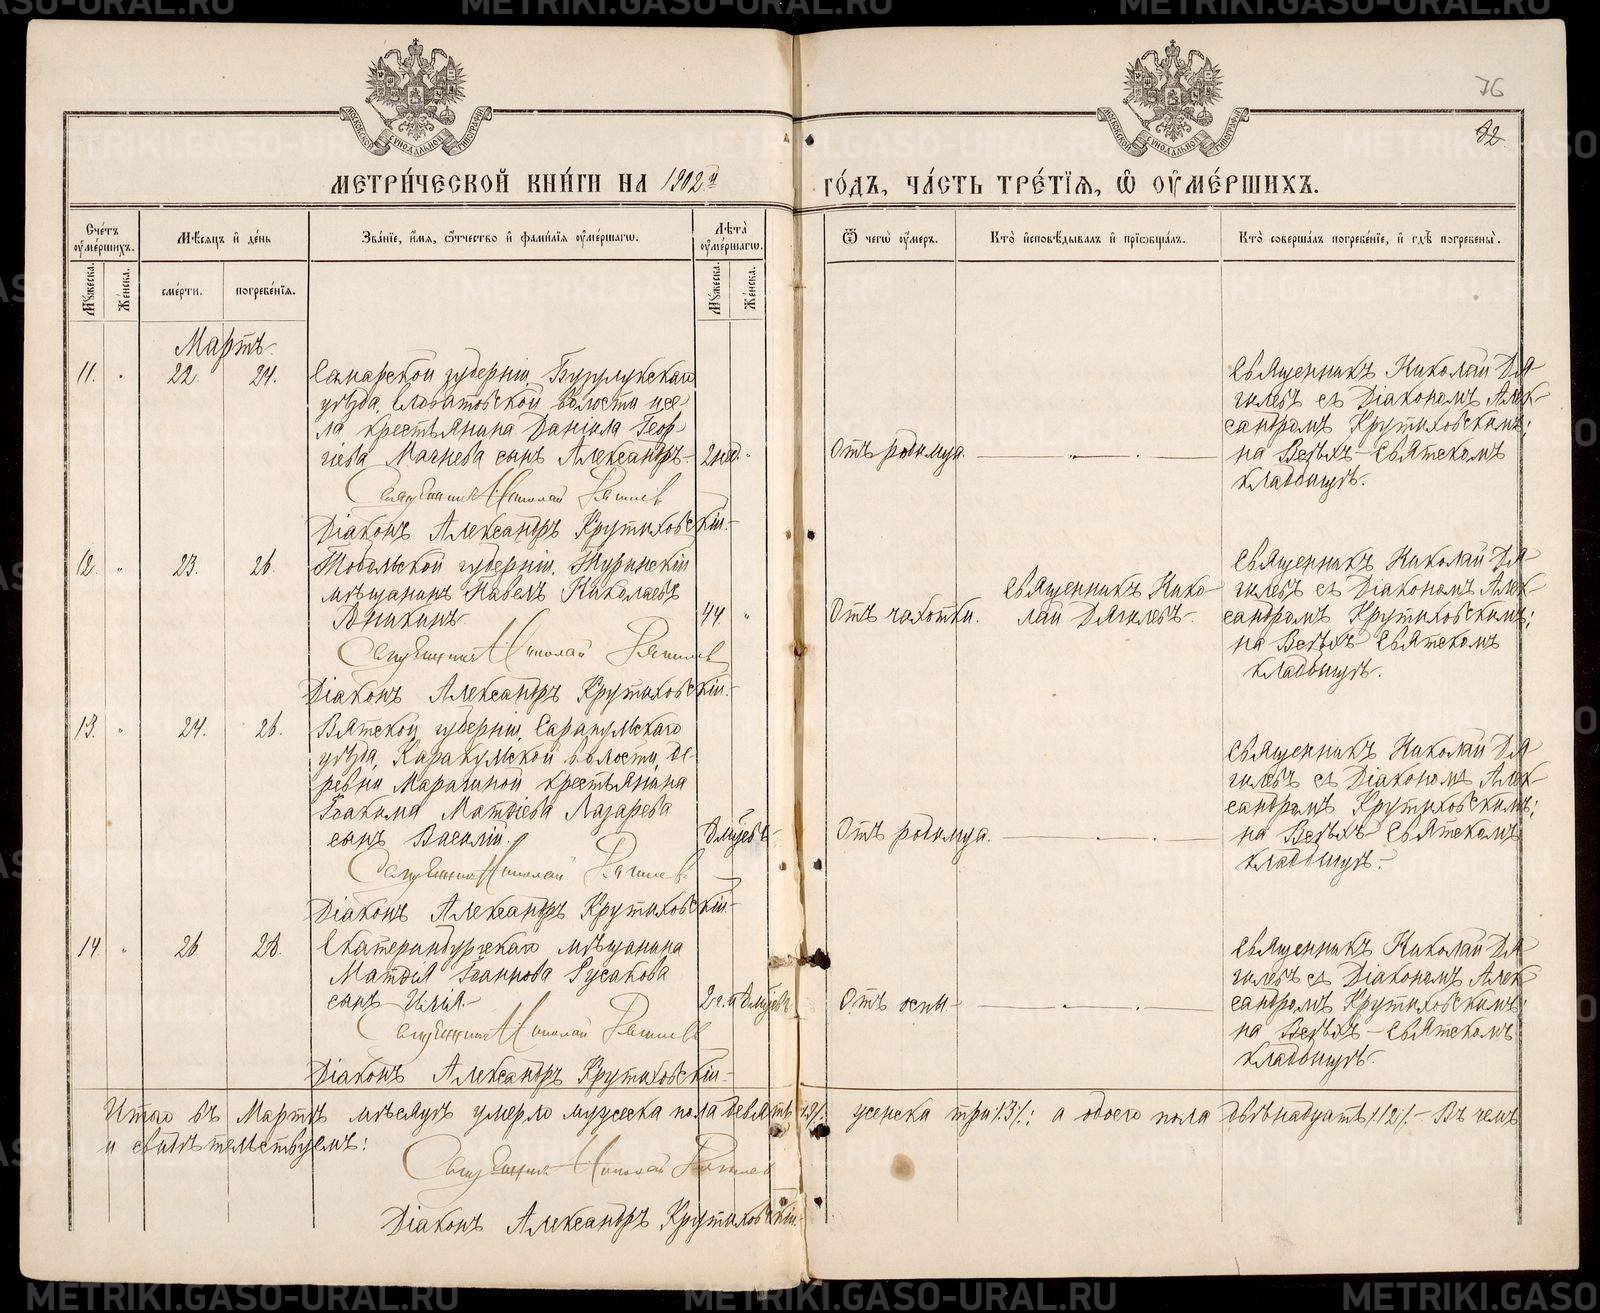 76
32
МЕТРИ́ЧЕСКОЙ КНИ́ГИ НА 1902й ГО́ДЪ, ЧА́СТЬ ТРЕ́ТІѦ, Ѡ҆ ОУ҆МЕ́РШИХЪ.
Сче́тъ оу҆ме́ршихъ.
Мѣ́сяцъ и҆ де́нь
Зва́ніе, и҆́мя, ѻ҆́тчество и҆ фами́лія оу҆ме́ршагѡ.
Лѣта̀ оу҆ме́ршагѡ.
Ѿ чегѡ̀ оу҆́меръ.
Кто̀ и҆сповѣ́дывалъ и҆ прїѡбща́лъ.
Кто̀ соверша́лъ погребе́ніе, и҆ гдѣ̀ погребены̀.
Мꙋ́жеска.
Же́нска.
сме́рти.
погребе́нїѧ.
Мꙋ́жеска.
Же́нска.
Мартъ
11. 22. 24. Самарской губерніи, Бузулукскаго
уѣзда,
ла крестьянина Даніила Геор-
гіева Магнева сынъ Александръ. 2 нед.
Священникъ Николай Дягилев
Діаконъ Александръ Крутиховскій.
Отъ родимца.
Священникъ Николай Дя-
гилевъ съ Діакономъ Алек-
сандромъ Крутиховскимъ;
на Всѣхъ-Святскомъ
кладбищѣ.
12. 23. 26. Тобольской губерніи, Туринскій
мѣщанинъ Павелъ Николаевъ
44
Священникъ Николай Дягилев
Діаконъ Александръ Крутиховскій.
Отъ чахотки.
Священникъ Нико-
лай Дягилевъ.
Священникъ Николай Дя-
гилевъ съ Діакономъ Алек-
сандромъ Крутиховскимъ;
на Всѣхъ Святскомъ
кладбищѣ.
13. 24. 26. Вятской губерніи, Сарапульскаго
уѣзда, Каракулмской волости, де-
ревни крестьянина
Іоакима Матѳіева Лазарева
сынъ Василій.
Священникъ Николай Дягилев
Діаконъ Александръ Крутиховскій.
Отъ родимца.
Священникъ Николай Дя-
гилевъ съ Діакономъ Алек-
сандромъ Крутиховскимъ;
на Всѣхъ Святскомъ
кладбищѣ.
14. 26 28. Екатеринбургскаго мѣщанина
Матѳія Іоаннова Русакова
сынъ Илія.
Священникъ Николай Дягилев
Діаконъ Александръ Крутиховскій.
Отъ оспы
Священникъ Николай Дя-
гилевъ съ Діакономъ Алек-
сандромъ Крутиховскимъ;
на Всѣхъ-Святскомъ
кладбищѣ.
Итого въ Мартѣ мѣсяцѣ умерло мужеска пола девять /9/. женска три /3/.; а обоего пола двѣнадцать /12/. – Въ чемъ
и свидѣтельствуемъ:
Священникъ Николай Дягилев
Діаконъ Александръ Крутиховскій.